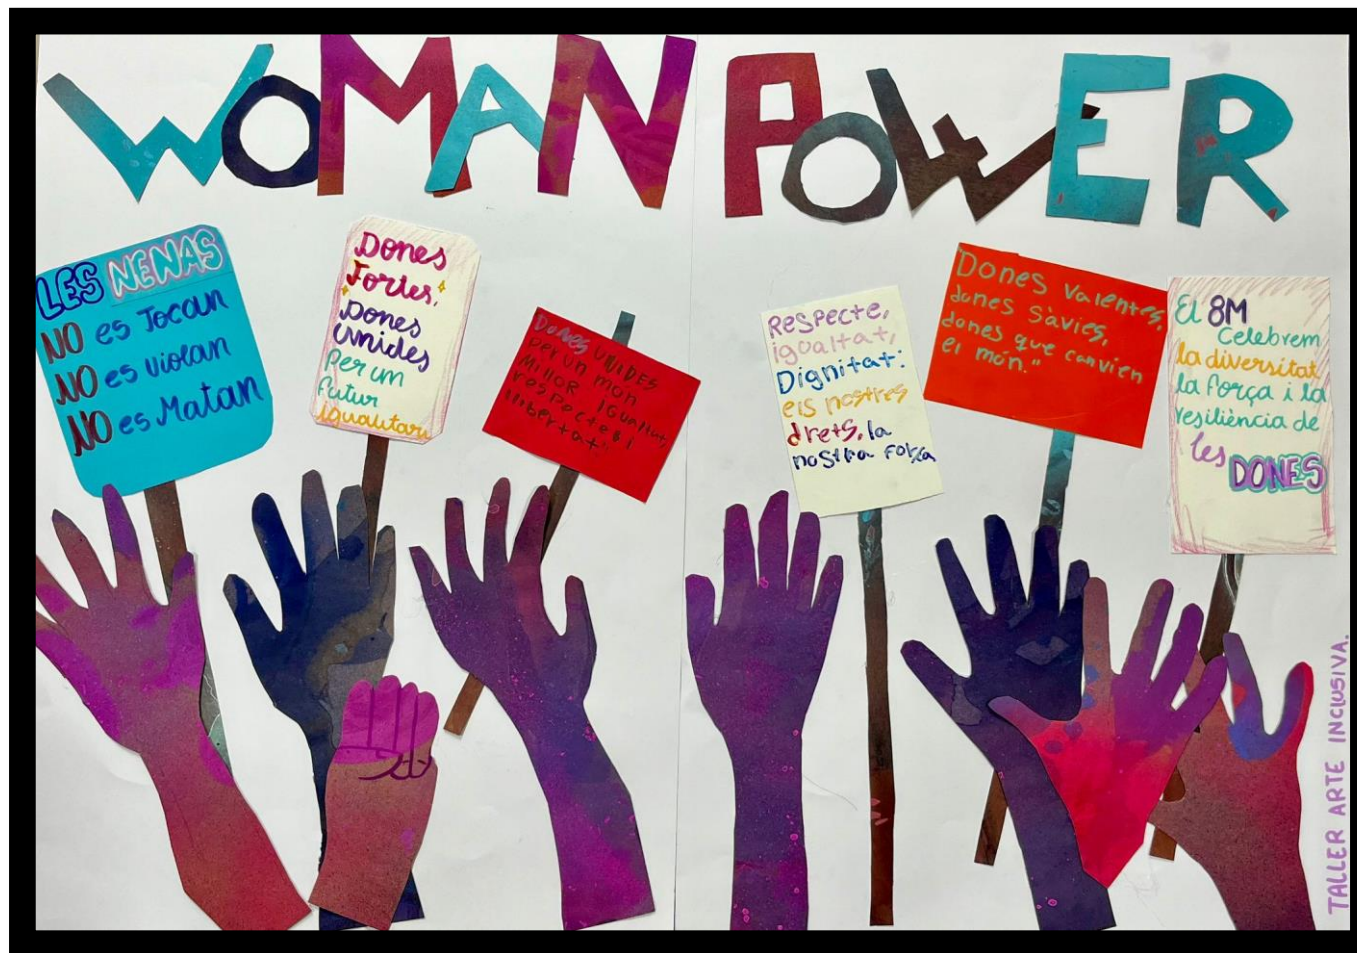 WOMAN POWER
LES NENAS
NO es Tocan
NO es violan
NO es Matan
Dones
Fortes,
Dones
Unides
Per un
futur
igualitari
Dones UNIDES
per un mon
Millor Igualtat,
respecte i
llibertat."
Respecte,
igualtat,
Dignitat:
els nostres
drets, la
nostra força
Dones valentes,
dones sàvies,
dones que canvien
el món."
El 8M
Celebrem
la diversitat
la força i la
resiliència de
les
DONES
TALLER ARTE INCLUSIVA.